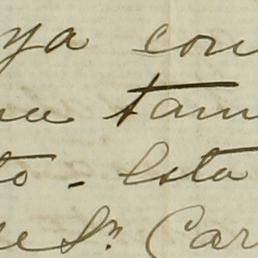 ya con
tam
to - Esta
Sr. Car